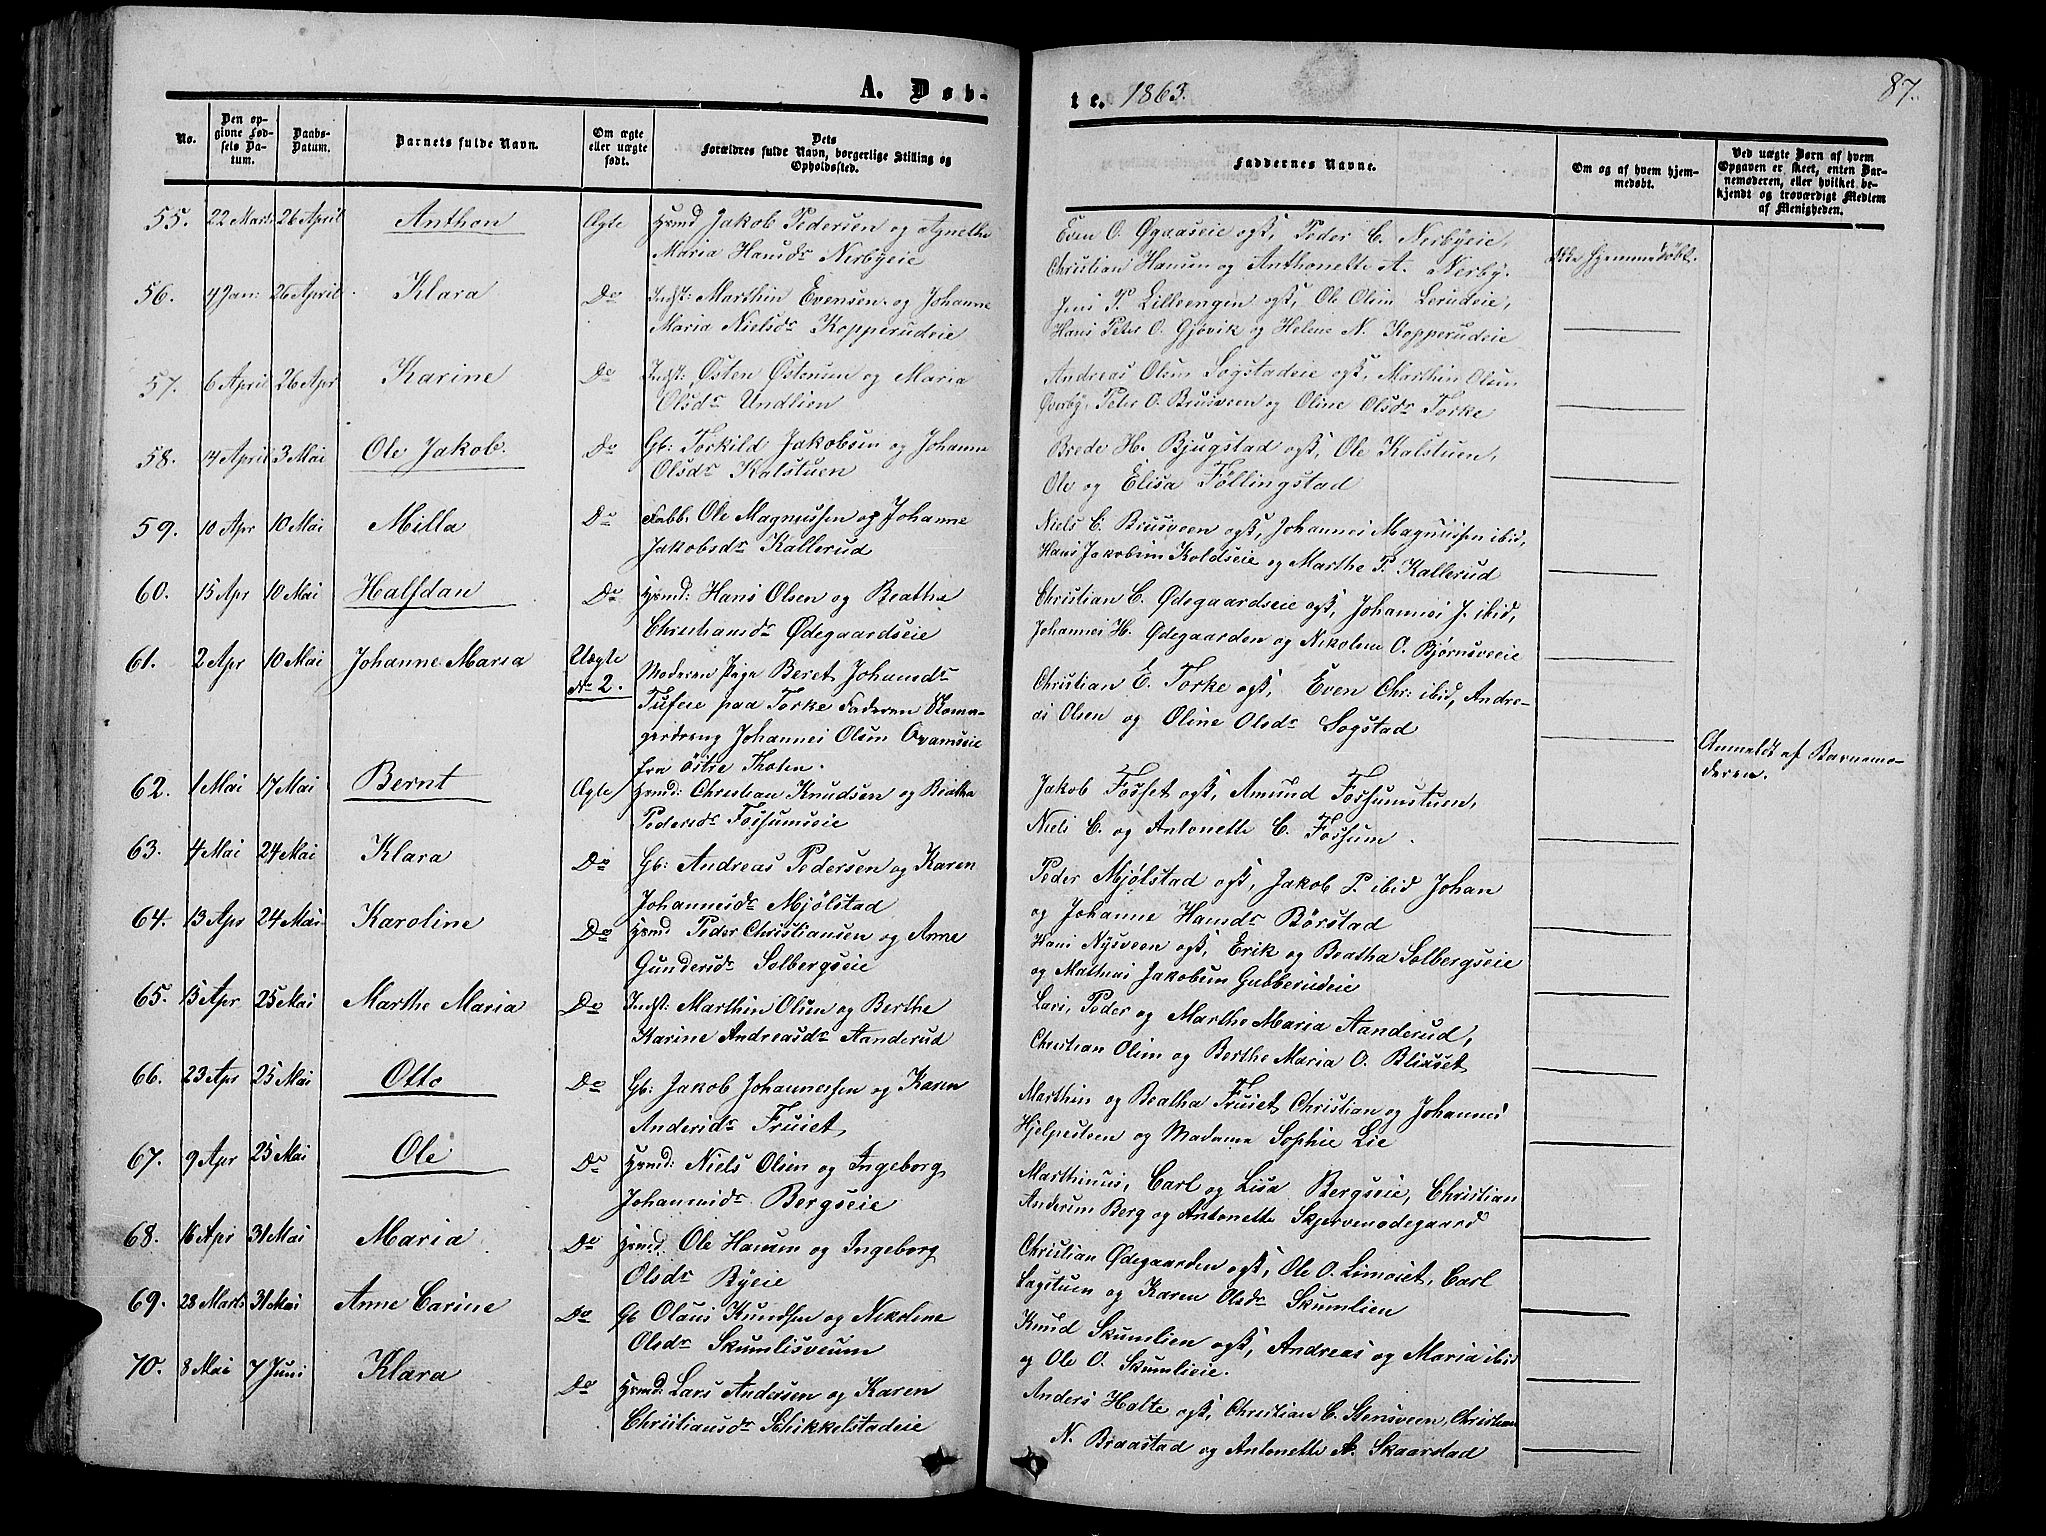 A. Døb-
te. 1863. 87.
No.
Den op-
givne Fød-
sels Da-
tum.
Daabs-
Datum.
Barnets fulde Navn.
Om ægte
eller uægte
født.
Dets
Forældres fulde Navn, borgerlige Stilling og
Opholdssted.
Faddernes Navne.
Om og af hvem hjem-
medøbt.
Ved uægte Børn af hvem
Opgaven er skeet, enten Bar-
nemoderen, eller hvilket be-
kjendt og troværdigt Medlem
af Menigheden.
55. 22 Marts 26 April Anthon Ægte Hsmd Jakob Pedersen og Agnethe
Maria Hansdr Nerbyeie
Even O. Øgaaseie ogs, Peder C. Nerbyeie,
Christian Hansen og Anthonette A. Nerby.
Ikke hjemmedøbt.
56. 4 Jan: 26 April Klara Do Indst: Marthin Evensen og Johanne
Maria Nielsdr Kopperudeie
Jens P. Lilleengen ogs, Ole Olsen Lerudeie,
Hans Peter O. Gjøvik og Helene N. Kopperudeie
57. 6 April 26 Apr Karine Do Indst: Østen Østensen og Maria
Olsdr Undlien
Andreas Olsen Sogstadeie ogs, Marthin Olsen
Øverby, Peter O. Brusveen og Oline Olsdr Torke
58. 14 April 3 Mai Ole Jakob. Do Gb: Torkild Jakobsen og Johanne
Olsdr Kalstuen
Brede H. Bjugstad ogs, Ole Kalstuen,
Ole og Elisa Føllingstad
59. 10 Apr 10 Mai Milla Do Fabb. Ole Magnussen og Johanne
Jakobsdr Kallerud
Niels C. Brusveen ogs, Johannes Magnussen ibid,
Hans Jakobsen Koldseie og Marthe P. Kallerud
60. 15 Apr 10 Mai Halfdan Do Hsmd: Hans Olsen og Beatha
Christiansdr Ødegaardseie
Christian C. Ødegaardseie ogs, Johannes J. ibid,
Johannes H. Ødegaarden og Nikoline O. Bjørnsveeie
61. 2 Apr 10 Mai Johanne Maria Uægte
No 2.
Moderen Pige Beret Johansdr
Tufeie paa Torke Faderen Skoma-
gerdreng Johannes Olsen Qvamseie
fra Østre Thoten.
Christian E. Torke ogs, Even Chr: ibid, Andre-
as Olsen og Oline Olsdr Sogstad
Anmeldt af Barnemo-
deren.
62. 1 Mai 17 Mai Bernt Ægte Hsmd: Christian Knudsen og Beatha
Pedersdr Fossumseie
Jakob Fosset ogs, Amund Fossumstuen,
Niels C. og Antonette C. Fossum.
63. 4 Mai 24 Mai Klara Do Gb: Andreas Pedersen og Karen
Johannesdr Mjølstad
Peder Mjølstad ogs, Jakob P. ibid Johan
og Johanne Hansdr Børstad
64. 13 Apr 24 Mai Karoline Do Hsmd Peder Christiansen og Anne
Gundersdr Solbergseie
Hans Nysveen ogs, Erik og Beatha Solbergseie
og Mathias Jakobsen Gubberudeie
65. 15 Apr 25 Mai Marthe Maria Do Indst: Marthin Olsen og Berthe
Karine Andreasdr Aanderud
Lars, Peder og Marthe Maria Aanderud,
Christian Olsen og Berthe Maria O. Blisset
66. 23 Apr 25 Mai Otto Do Gb: Jakob Johannessen og Karen
Andersdr Fruset
Marthin og Beatha Fruset Christian og Johannes
Hjelpesteen og Madame Sophie Lie
67. 9 Apr 25 Mai Ole Do Hsmd: Niels Olsen og Ingeborg
Johannesdr Bergseie
Marthinus, Carl og Lisa Bergseie, Christian
Andersen Berg og Antonette Skjervenødegaard
68. 16 Apr 31 Mai Maria Do Hsmd. Ole Hansen og Ingeborg
Olsdr Byeie
Christian Ødegaarden ogs, Ole O. Limoiet, Carl
Sagstuen og Karen Olsdr Skumlien
69. 28 Marts 31 Mai Anne Carine Do Gb Olaus Knudsen og Nikoline
Olsdr Skumlisveum
Knud Skumlien ogs, Andreas og Maria ibid
og Ole O. Skumlieie.
70. 8 Mai 7 Juni Klara Do Hsmd: Lars Andersen og Karen
Christiansdr Schikkelstadeie
Anders Halte ogs, Christian C. Stensveen, Christian
N. Braastad og Antonette A. Skaarstad